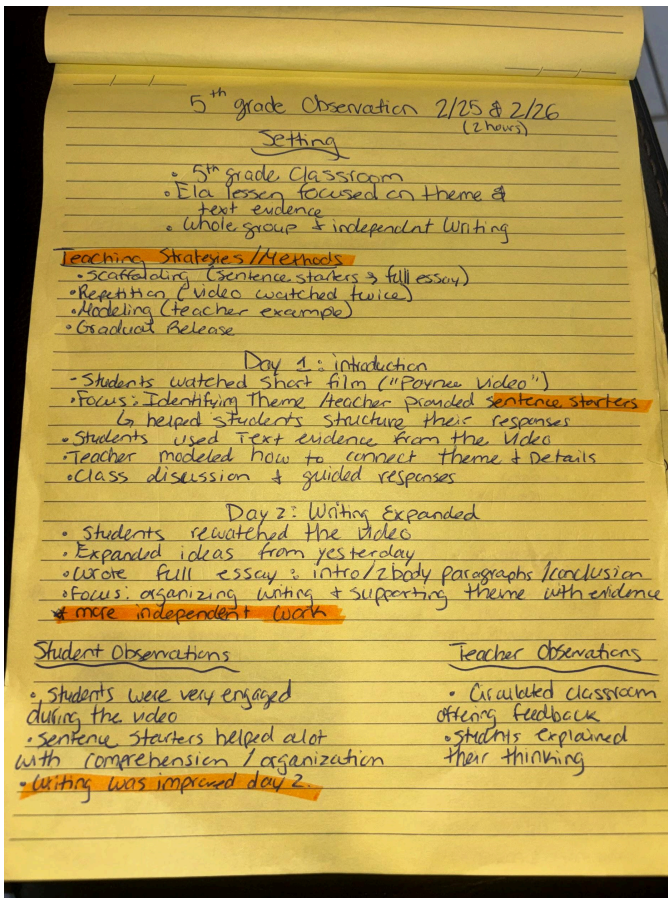 5th grade Observation 2/25 & 2/26
(2 hours)
Setting
• 5th grade Classroom
• Ela lesson focused on theme &
text evidence
• Whole group & independnt Writing
Teaching Strategies/Methods
• Scaffolding (sentence starters → full essay)
• Repetition (video watched twice)
• Modeling (teacher example)
• Gradual Release
Day 1: introduction
- Students watched short film ("Poynee Video")
• Focus: Identifying Theme /teacher provided sentence starters
↳ helped students structure their responses
• Students used Text evidence from the Video
• Teacher modeled how to connect theme & Details
• Class discussion & guided responses
Day 2: Writing Expanded
• Students rewatched the video
• Expanded ideas from yesterday
• Wrote full essay: intro/2body paragraphs/conclusion
• Focus: organizing writing & supporting theme with evidence
* more independent work
Student Observations
• Students were very engaged
during the video
• sentence starters helped alot
with comprehension / organization
• Writing was improved day 2.
Teacher Observations
• Circulated classroom
offering feedback
• students explained
their thinking